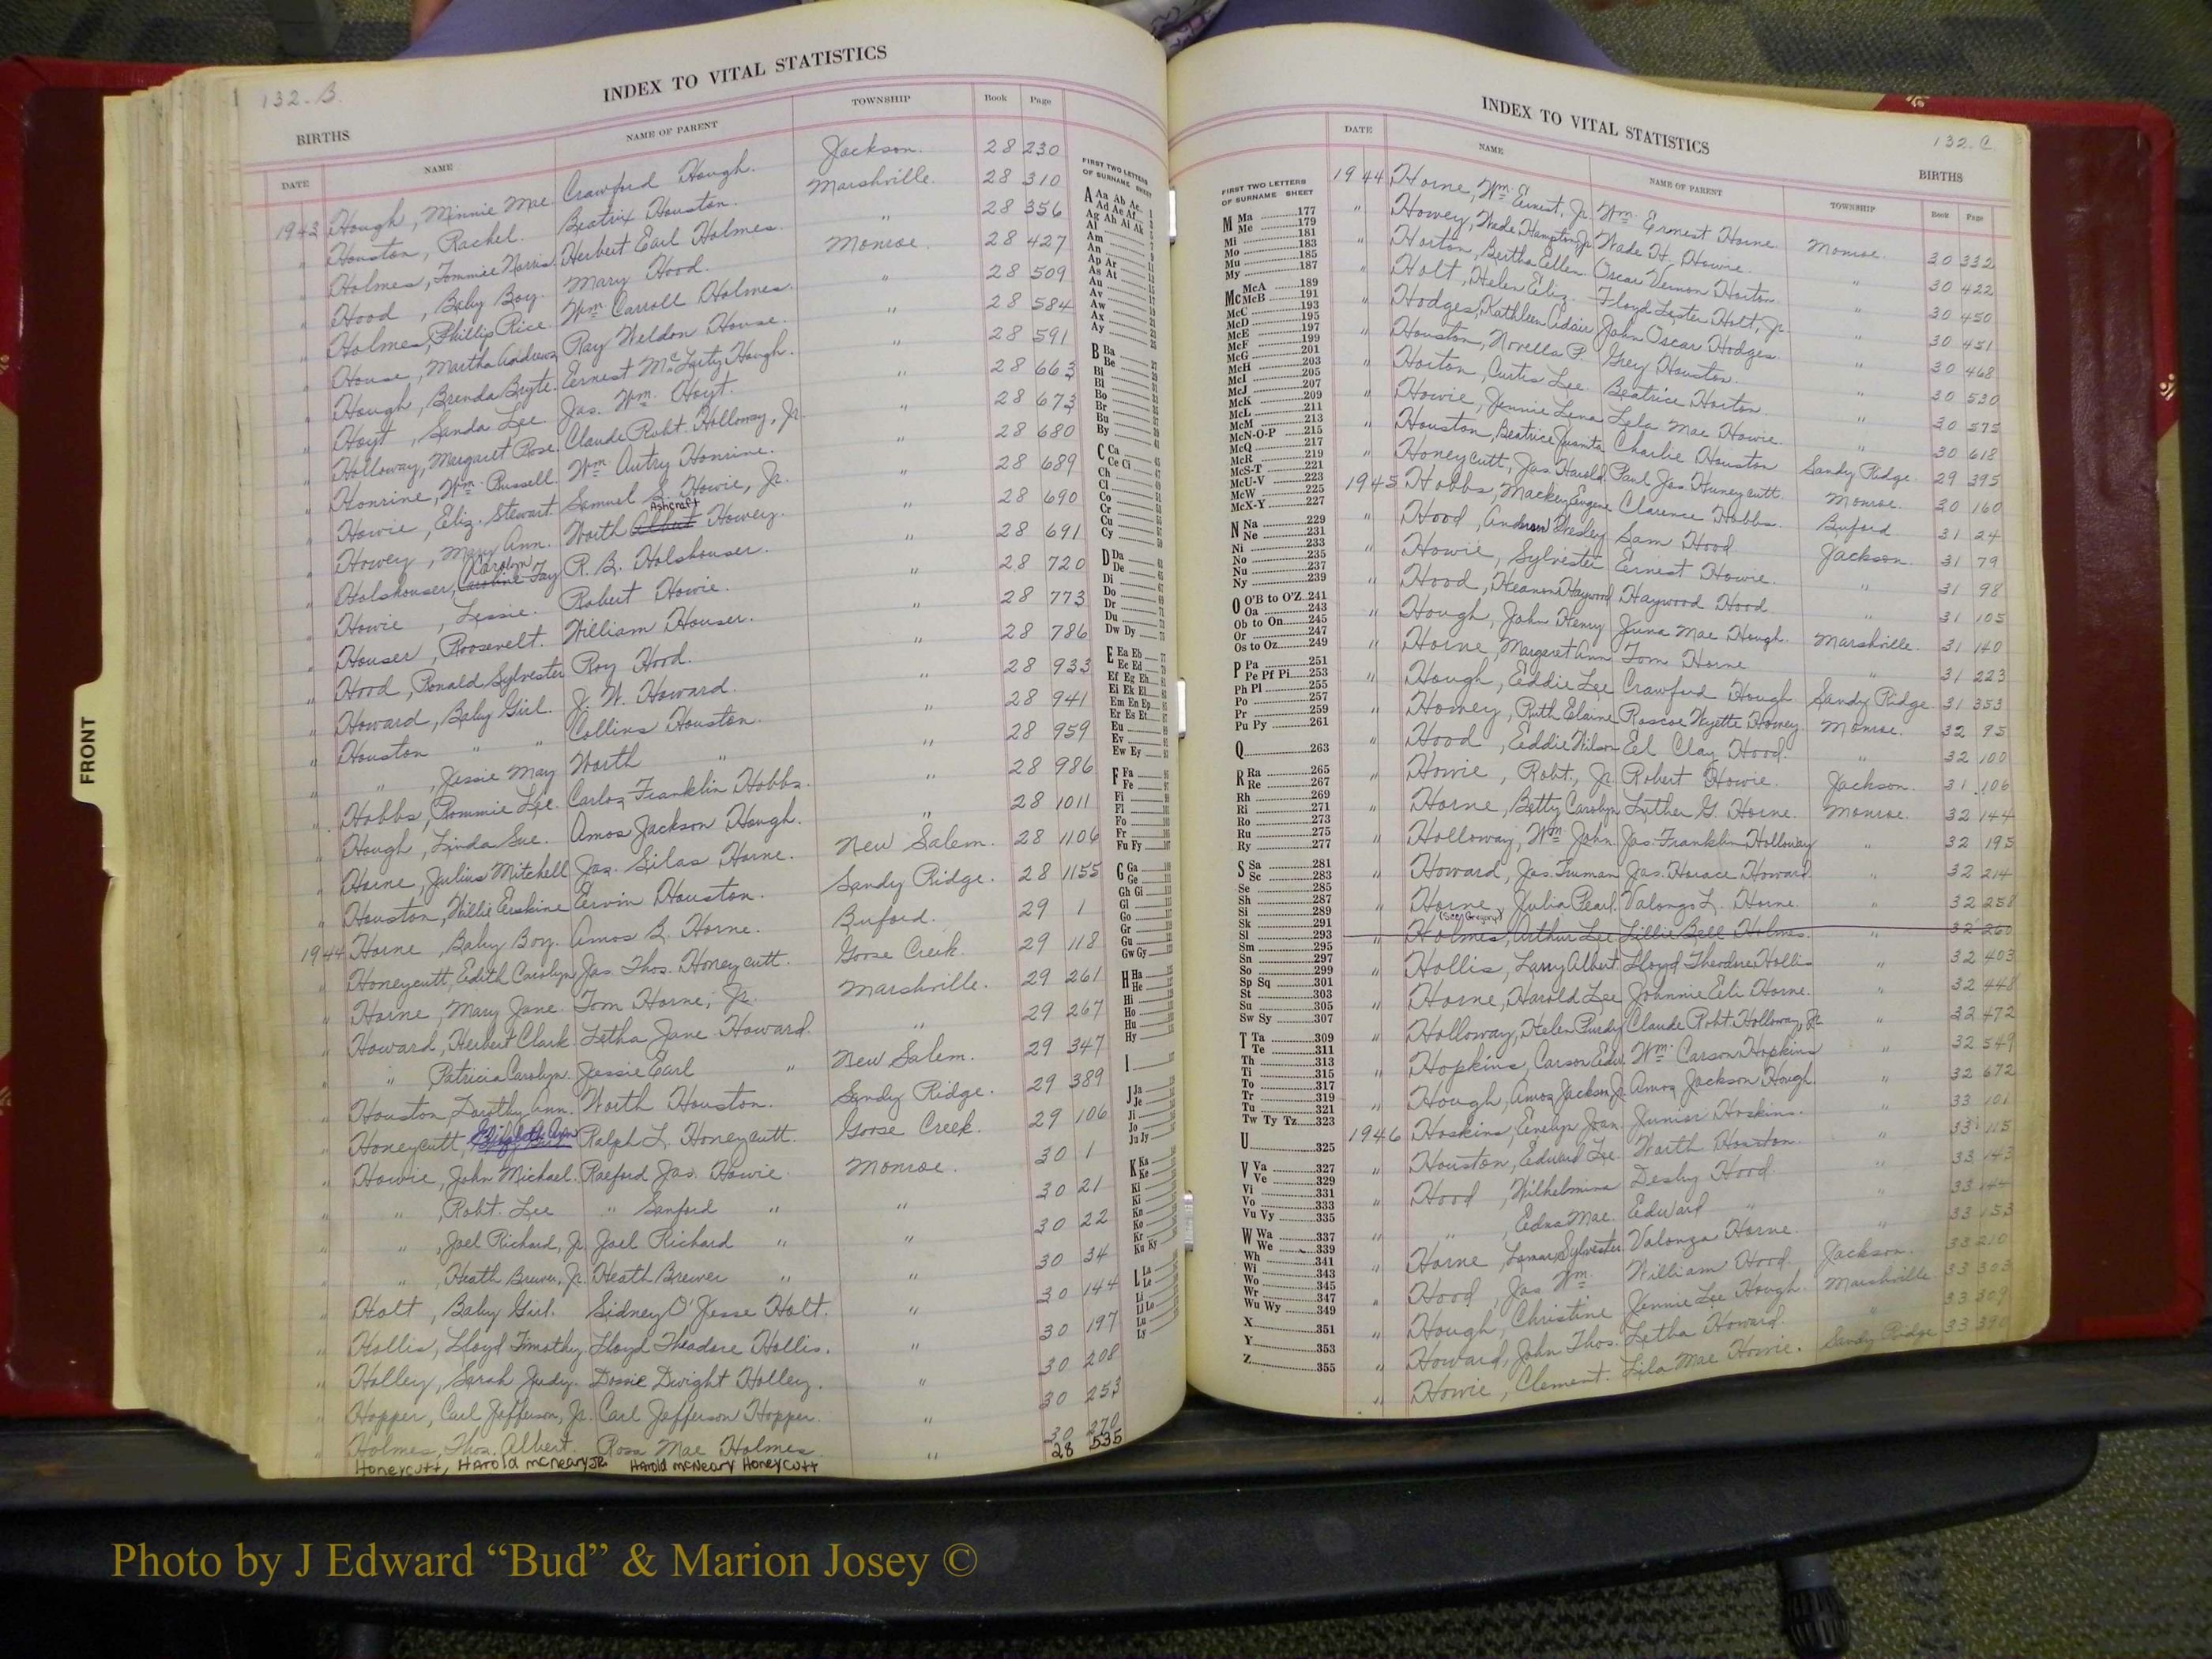 132-B.
INDEX TO VITAL STATISTICS
BIRTHS
DATE NAME NAME OF PARENT TOWNSHIP Book Page
1943 Hough, Minnie Mae. Crawford Hough. Jackson. 28 230
" Houston, Rachel. Beatrix Houston. Marshville. 28 310
" Holmes, Tommie Norris. Herbert Earl Holmes. " 28 356
" Hood, Baby Boy. Mary Hood. Monroe. 28 427
" Holmes, Phillip Rice. Wm. Carroll Holmes. " 28 509
" House, Martha Andrews Ray Weldon House. " 28 584
" Hough, Brenda Bryte. Ernest McLarty Hough. " 28 591
" Hoyt, Sanda Lee. Jas. Wm. Hoyt. " 28 663
" Holloway, Margaret Rose Claude Robt. Holloway, Jr. " 28 673
" Honrine, Wm. Russell. Wm. Autry Honrine. " 28 680
" Howie, Eliz. Stewart. Samuel S. Howie, Jr. " 28 689
" Howey, Mary Ann. Worth Ashcraft Howey. " 28 690
" Holshouser, Carolyn Fay R. B. Holshouser. " 28 691
" Howie, Lessie. Robert Howie. " 28 720
" Houser, Roosevelt. William Houser. " 28 773
" Hood, Ronald Sylvester Roy Hood. " 28 786
" Howard, Baby Girl. J. W. Howard. " 28 933
" Houston " " Collins Houston. " 28 941
" " , Jessie May Worth " " 28 959
" Hobbs, Rommie Lee. Carlos Franklin Hobbs. " 28 986
" Hough, Linda Sue. Amos Jackson Hough. " 28 1011
" Horne, Julius Mitchell Jas. Silas Horne. New Salem. 28 1106
" Houston, Willie Erskine Ervin Houston. Sandy Ridge. 28 1155
1944 Horne, Baby Boy. Amos B. Horne. Buford. 29 1
" Honeycutt, Edith Carolyn Jas. Thos. Honeycutt. Goose Creek. 29 118
" Horne, Mary Jane. Tom Horne, Jr. Marshville. 29 261
" Howard, Herbert Clark. Letha Jane Howard. " 29 267
" " Patricia Carolyn. Jessie Earl " New Salem. 29 347
" Houston, Dorothy Ann. Worth Houston. Sandy Ridge. 29 389
" Honeycutt, Elizabeth Ann Ralph L. Honeycutt. Goose Creek. 29 106
" Howie, John Michael. Raeford Jas. Howie. Monroe. 30 1
" " , Robt. Lee " Sanford " " 30 21
" " , Joel Richard, Jr. Joel Richard " " 30 22
" " , Heath Brewer, Jr. Heath Brewer " " 30 34
" Holt, Baby Girl. Sidney O'Jesse Holt. " 30 144
" Hollis, Lloyd Timothy. Lloyd Theodore Hollis. " 30 197
" Holley, Sarah Judy. Dossie Dwight Holley. " 30 208
" Hopper, Carl Jefferson, Jr. Carl Jefferson Hopper. " 30 253
" Holmes, Thos. Albert. Rosa Mae Holmes. " 30 270
Honeycutt, Harold McNeary JR Harold McNeary Honeycutt " 28 535
FIRST TWO LETTERS
OF SURNAME SHEET
A Aa Ab Ac
Ad Ae Af
Ag Ah Ai Ak
Al
Am
An
Ap Ar
As At
Au
Av
Aw
Ax
Ay
B Ba
Be
Bi
Bl
Bo
Br
Bu
By
C Ca
Ce Ci
Ch
Cl
Co
Cr
Cu
Cy
D Da
De
Di
Do
Dr
Du
Dw Dy
E Ea Eb
Ec Ed
Ef Eg Eh
Ei Ek El
Em En Ep
Er Es Et
Eu
Ev
Ew Ey
F Fa
Fe
Fi
Fl
Fo
Fr
Fu Fy
G Ga
Ge
Gh Gi
Gl
Go
Gr
Gu
Gw Gy
H Ha
He
Hi
Ho
Hu
Hy
I
J Ja
Je
Ji
Jo
Ju Jy
K Ka
Ke
Ki
Kl
Kn
Ko
Kr
Ku Ky
L La
Le
Li
Ll Lo
Lu
Ly
INDEX TO VITAL STATISTICS
132-C.
BIRTHS
FIRST TWO LETTERS
OF SURNAME SHEET
M Ma 177
Me 179
Mi 181
Mo 183
Mu 185
My 187
Mc McA 189
McB 191
McC 193
McD 195
McE 197
McF 199
McG 201
McH 203
McI 205
McJ 207
McK 209
McL 211
McM 213
McN-O-P 215
McQ 217
McR 219
McS-T 221
McU-V 223
McW 225
McX-Y 227
N Na 229
Ne 231
Ni 233
No 235
Nu 237
Ny 239
O O'B to O'Z 241
Oa 243
Ob to On 245
Or 247
Os to Oz 249
P Pa 251
Pe Pf Pi 253
Ph Pl 255
Po 257
Pr 259
Pu Py 261
Q 263
R Ra 265
Re 267
Rh 269
Ri 271
Ro 273
Ru 275
Ry 277
S Sa 281
Sc 283
Se 285
Sh 287
Si 289
Sk 291
Sl 293
Sm 295
Sn 297
So 299
Sp Sq 301
St 303
Su 305
Sw Sy 307
T Ta 309
Te 311
Th 313
Ti 315
To 317
Tr 319
Tu 321
Tw Ty Tz 323
U 325
V Va 327
Ve 329
Vi 331
Vo 333
Vu Vy 335
W Wa 337
We 339
Wh 341
Wi 343
Wo 345
Wr 347
Wu Wy 349
X 351
Y 353
Z 355
DATE NAME NAME OF PARENT TOWNSHIP Book Page
1944 Horne, Wm. Ernest, Jr. Wm. Ernest Horne. Monroe. 30 332
" Howey, Wade Hampton Jr Wade H. Howie. " 30 422
" Horton, Bertha Ellen. Oscar Vernon Horton. " 30 450
" Holt, Helen Eliz. Floyd Lester Holt, Jr. " 30 451
" Hodges, Kathleen Adair John Oscar Hodges. " 30 468
" Houston, Novella P. Grey Houston. " 30 530
" Horton, Curtis Lee. Beatrice Horton. " 30 575
" Howie, Jennie Lena Lela Mae Howie. " 30 618
" Houston, Beatrice Juanita Charlie Houston Sandy Ridge. 29 395
" Honeycutt, Jas. Harold. Paul Jas. Huneycutt. Monroe. 30 160
1945 Hobbs, Mackey Eugene Clarence Hobbs. Buford 31 24
" Hood, Anderson Presley Sam Hood. Jackson. 31 79
" Howie, Sylvester Ernest Howie. " 31 98
" Hood, Keanon Haywood Haywood Hood. " 31 105
" Hough, John Henry Juna Mae Hough. Marshville. 31 140
" Horne, Margaret Ann Tom Horne " 31 223
" Hough, Eddie Lee Crawford Hough. Sandy Ridge. 31 353
" Howey, Ruth Elaine Roscoe Wyette Howey. Monroe. 32 95
" Hood, Eddie Wilson Eel Clay Hood. " 32 100
" Howie, Robt., Jr. Robert Howie. Jackson. 31 106
" Horne, Betty Carolyn Luther G. Horne. Monroe. 32 144
" Holloway, Wm. John. Jas. Franklin Holloway " 32 195
" Howard, Jas. Truman Jas. Horace Howard. " 32 214
" Horne, Julia Pearl. Valongo L. Horne. " 32 258
" Holmes, (See Gregory) Arthur Lee Lillie Bell Holmes. " 32 260
" Hollis, Larry Albert. Lloyd Theodore Hollis " 32 403
" Horne, Harold Lee Johnnie Eli Horne. " 32 448
" Holloway, Helen Purdy Claude Robt. Holloway, Jr. " 32 472
" Hopkins, Carson Edw. Wm. Carson Hopkins " 32 549
" Hough, Amos Jackson Jr. Amos Jackson Hough. " 32 672
1946 Hoskins, Evelyn Joan Junior Hoskins. " 33 101
" Houston, Edward Lee Worth Houston. " 33 115
" Hood, Wilhelmina Desby Hood. " 33 143
" " , Edna Mae. Edward " " 33 144
" Horne, Lamar Sylvester. Valonza Horne. " 33 153
" Hood, Jas. Wm. William Hood. Jackson. 33 210
" Hough, Christine Jennie Lee Hough. Marshville. 33 303
" Howard, John Thos. Letha Howard. " 33 309
" Howie, Clement. Lila Mae Howie. Sandy Ridge 33 390
FRONT
Photo by J Edward “Bud” & Marion Josey ©